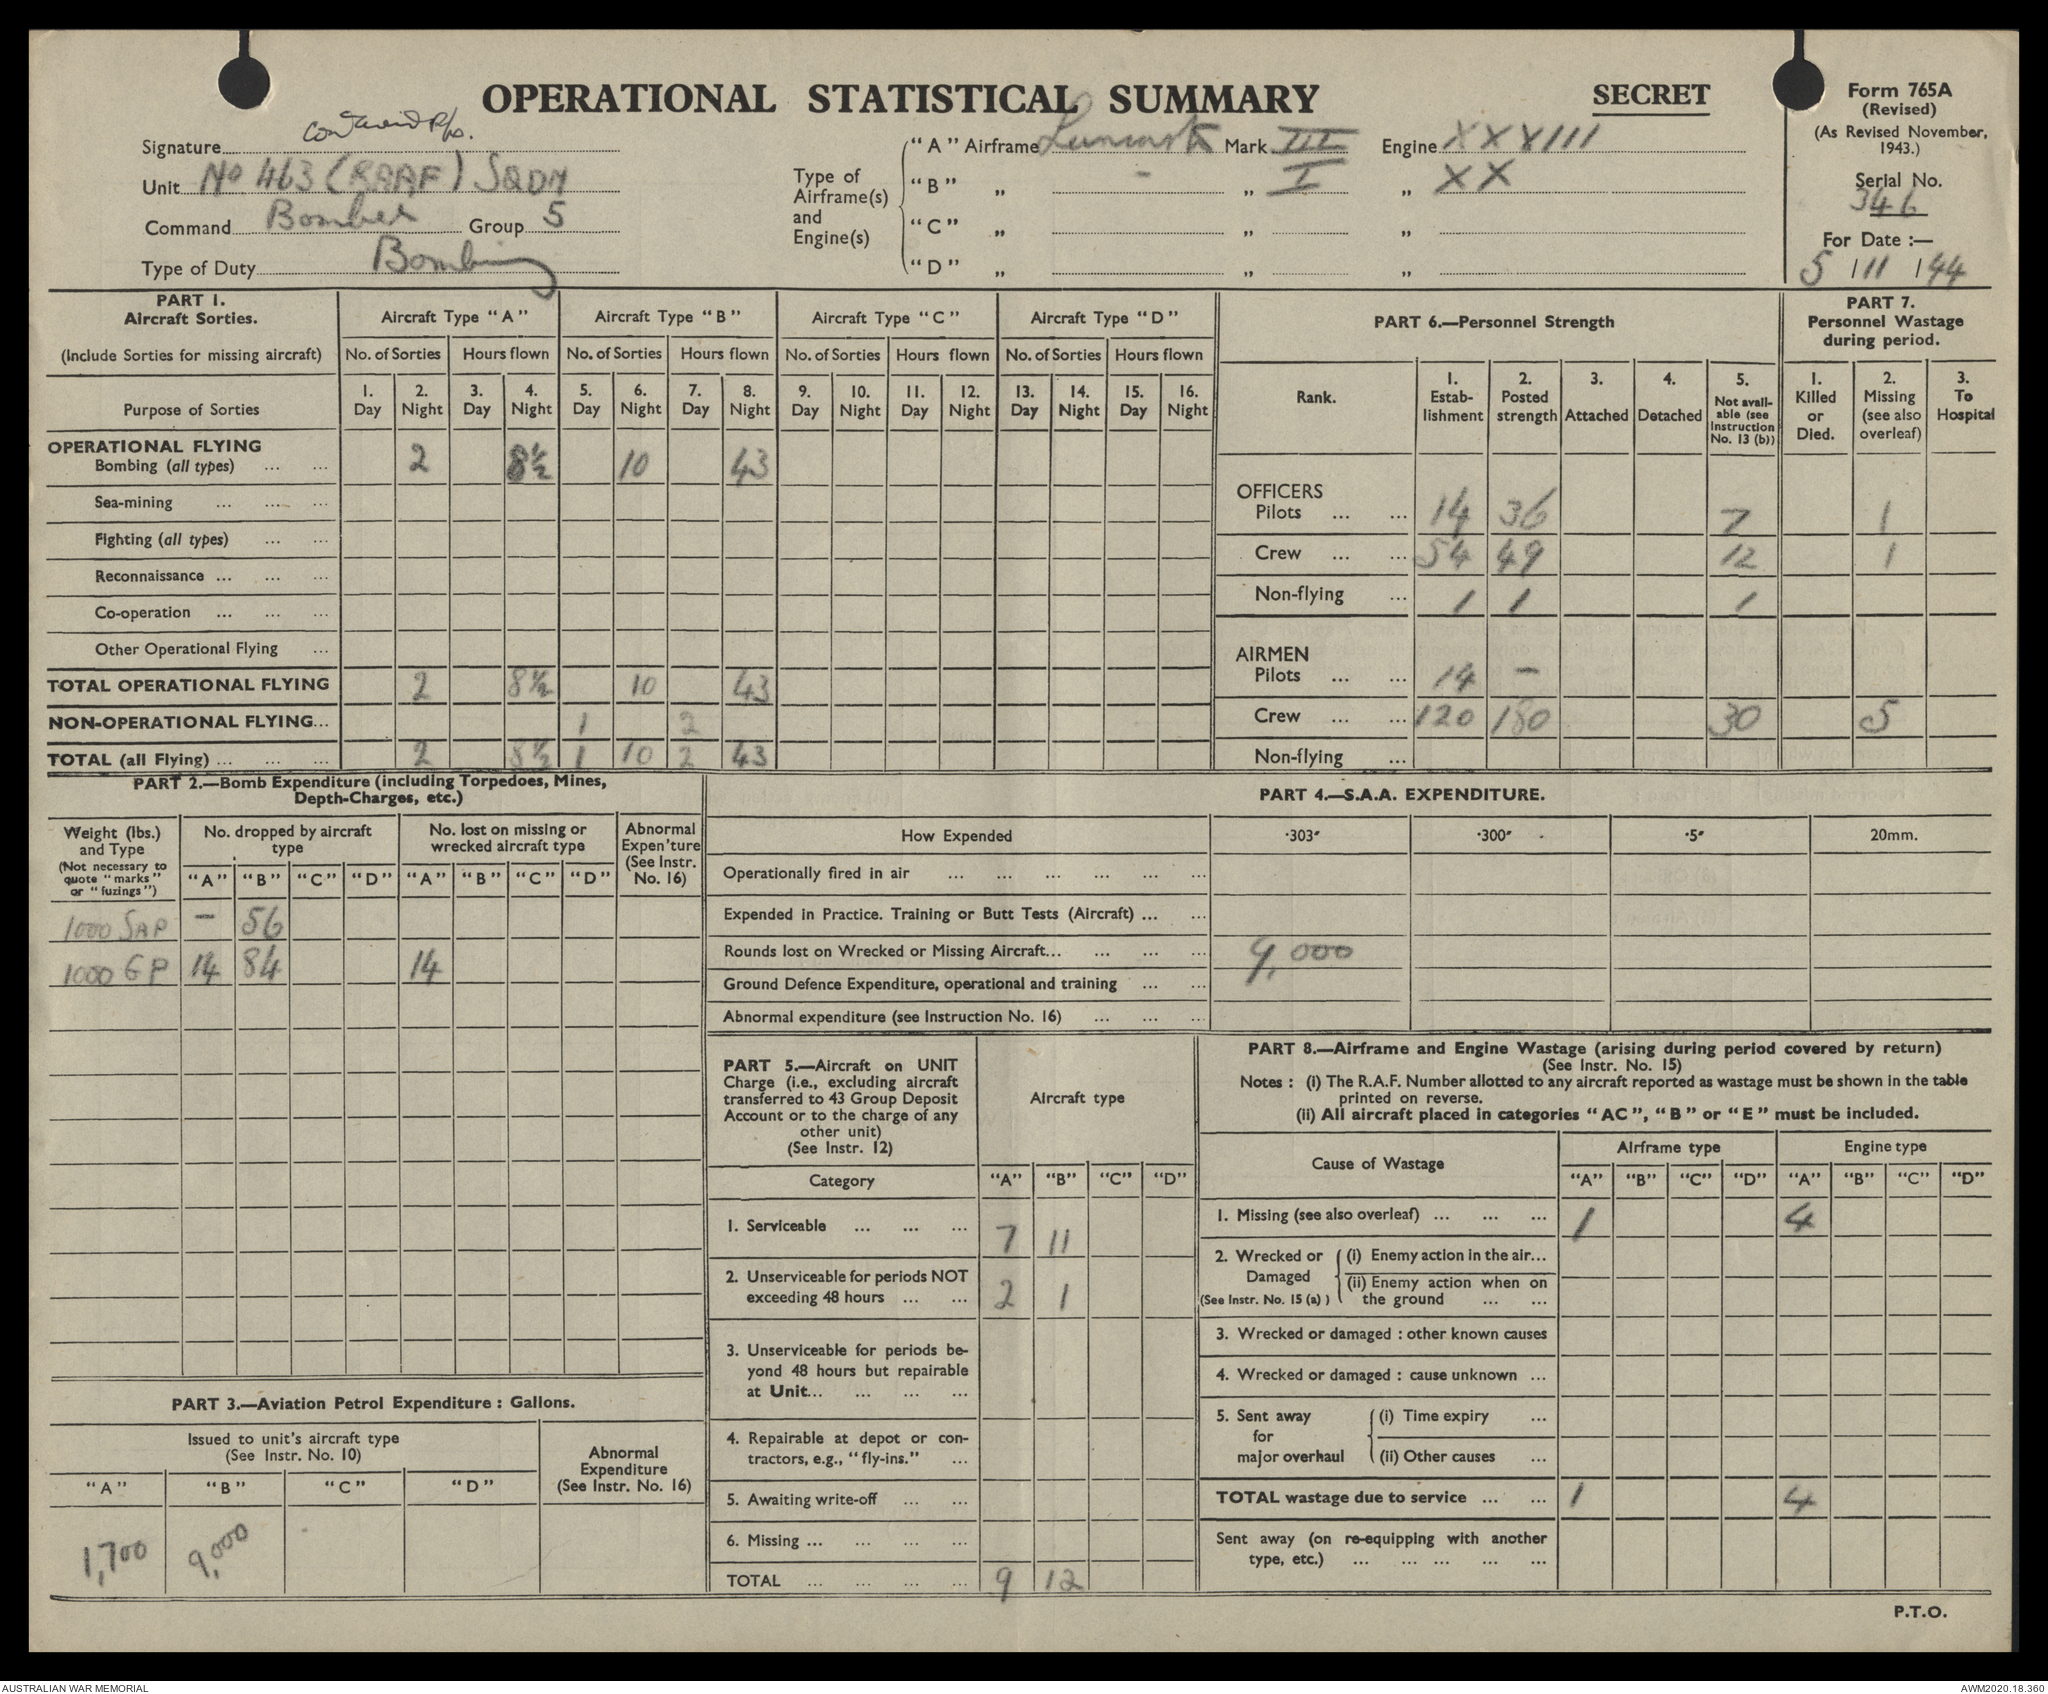 OPERATIONAL STATISTICAL SUMMARY
SECRET
Form 765A
(Revised)
(As Revised November, 1943.)
Serial No.
346
For Date :—
5 / 11 / 44
Signature
Unit No 463 (RAAF) SQDN
Command Bomber Group 5
Type of Duty Bombing
Type of Airframe(s) and Engine(s)
"A" Airframe Lancaster Mark III Engine XXXVIII
"B" „ - „ I „ XX
"C" „ „ „
"D" „ „ „
PART 1.
Aircraft Sorties.
(Include Sorties for missing aircraft)
Aircraft Type "A" Aircraft Type "B" Aircraft Type "C" Aircraft Type "D"
No. of Sorties Hours flown No. of Sorties Hours flown No. of Sorties Hours flown No. of Sorties Hours flown
Purpose of Sorties
1. Day 2. Night 3. Day 4. Night 5. Day 6. Night 7. Day 8. Night 9. Day 10. Night 11. Day 12. Night 13. Day 14. Night 15. Day 16. Night
OPERATIONAL FLYING
Bombing (all types) ... ... 2 8½ 10 43
Sea-mining ... ... ...
Fighting (all types) ... ...
Reconnaissance ... ... ...
Co-operation ... ... ...
Other Operational Flying ...
TOTAL OPERATIONAL FLYING 2 8½ 10 43
NON-OPERATIONAL FLYING... 1 2
TOTAL (all Flying) ... ... ... 2 8½ 1 10 2 43
PART 6.—Personnel Strength
Rank. 1. Estab-lishment 2. Posted strength 3. Attached 4. Detached 5. Not avail-able (see Instruction No. 13 (b))
PART 7.
Personnel Wastage during period.
1. Killed or Died. 2. Missing (see also overleaf) 3. To Hospital
OFFICERS
Pilots ... ... 14 36 7 1
Crew ... ... 54 49 12 1
Non-flying ... 1 1 1
AIRMEN
Pilots ... ... 14 —
Crew ... ... 120 180 30 5
Non-flying ...
PART 2.—Bomb Expenditure (including Torpedoes, Mines, Depth-Charges, etc.)
Weight (lbs.) and Type
(Not necessary to quote "marks" or "fuzings")
No. dropped by aircraft type
No. lost on missing or wrecked aircraft type
Abnormal Expen'ture (See Instr. No. 16)
"A" "B" "C" "D" "A" "B" "C" "D"
1000 SAP — 56
1000 GP 14 84 14
PART 3.—Aviation Petrol Expenditure : Gallons.
Issued to unit's aircraft type
(See Instr. No. 10)
Abnormal Expenditure (See Instr. No. 16)
"A" "B" "C" "D"
1,700 9,000
PART 4.—S.A.A. EXPENDITURE.
How Expended ·303″ ·300″ ·5″ 20mm.
Operationally fired in air ... ... ... ... ... ...
Expended in Practice. Training or Butt Tests (Aircraft) ... ...
Rounds lost on Wrecked or Missing Aircraft... ... ... ... 9,000
Ground Defence Expenditure, operational and training ... ...
Abnormal expenditure (see Instruction No. 16) ... ... ...
PART 5.—Aircraft on UNIT Charge (i.e., excluding aircraft transferred to 43 Group Deposit Account or to the charge of any other unit)
(See Instr. 12)
Aircraft type
Category "A" "B" "C" "D"
1. Serviceable ... ... ... 7 11
2. Unserviceable for periods NOT exceeding 48 hours ... ... 2 1
3. Unserviceable for periods be-yond 48 hours but repairable at Unit... ... ... ...
4. Repairable at depot or con-tractors, e.g., "fly-ins." ...
5. Awaiting write-off ... ...
6. Missing ... ... ... ...
TOTAL ... ... ... ... 9 12
PART 8.—Airframe and Engine Wastage (arising during period covered by return)
(See Instr. No. 15)
Notes : (i) The R.A.F. Number allotted to any aircraft reported as wastage must be shown in the table printed on reverse.
(ii) All aircraft placed in categories "AC", "B" or "E" must be included.
Cause of Wastage Airframe type Engine type
"A" "B" "C" "D" "A" "B" "C" "D"
1. Missing (see also overleaf) ... ... ... 1 4
2. Wrecked or Damaged (See Instr. No. 15 (a) )
(i) Enemy action in the air...
(ii) Enemy action when on the ground ... ...
3. Wrecked or damaged : other known causes
4. Wrecked or damaged : cause unknown ...
5. Sent away for major overhaul
(i) Time expiry ...
(ii) Other causes ...
TOTAL wastage due to service ... ... 1 4
Sent away (on re-equipping with another type, etc.) ... ... ... ... ...
P.T.O.
AUSTRALIAN WAR MEMORIAL
AWM2020.18.360